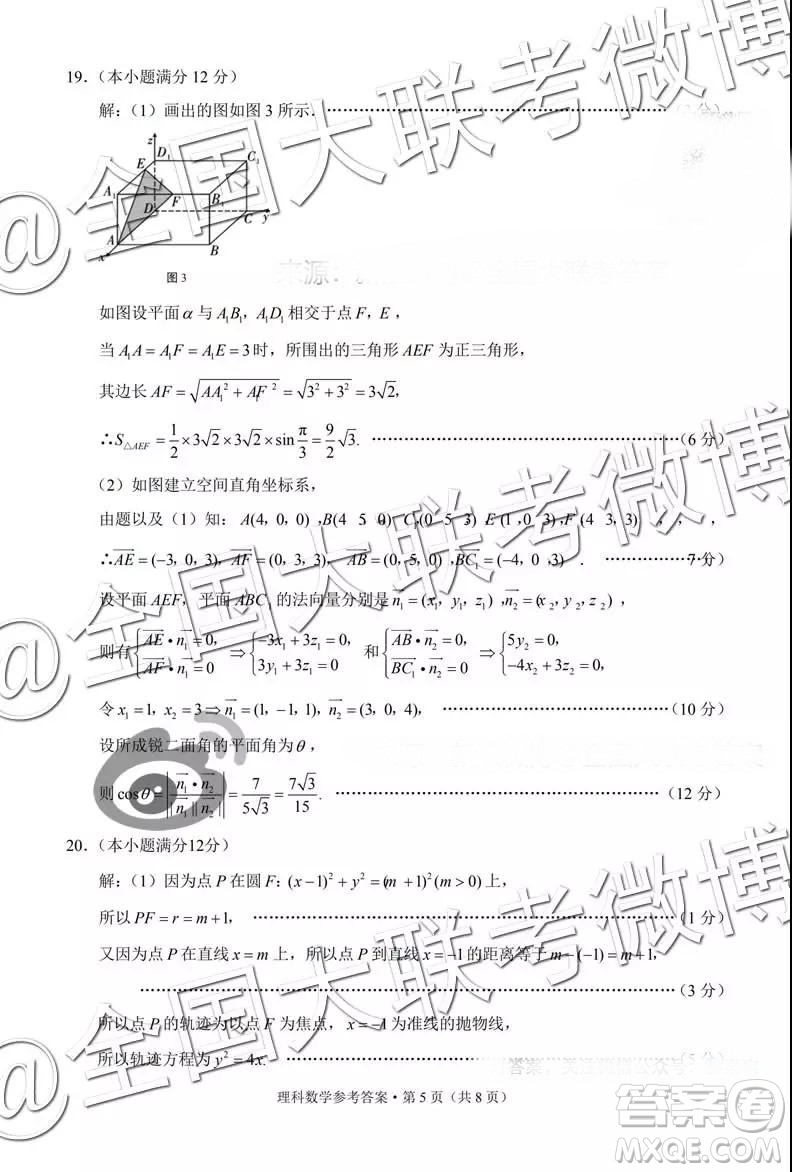 19.（本小题满分 12 分）
解:（1）画出的图如图 3 所示.
z
D₁
C₁
E
A₁
F
B₁
D
C
y
A
B
x
图 3
如图设平面 α 与 A₁B₁，A₁D₁ 相交于点 F，E，
当 A₁A = A₁F = A₁E = 3 时，所围出的三角形 AEF 为正三角形，
其边长 AF = √(AA₁² + A₁F²) = √(3² + 3²) = 3√2,
∴S△AEF = 1/2 × 3√2 × 3√2 × sin π/3 = 9/2 √3. ……（6 分）
（2）如图建立空间直角坐标系，
由题以及（1）知：A(4，0，0)，B(4 5 0) C₁(0 5 3) E(1，0 3)，F(4 3，3) ， ， ，
∴AE = (−3，0，3)，AF = (0，3，3)， AB = (0，5，0)，BC₁ = (−4，0，3) . ……7 分）
设平面 AEF，平面 ABC₁ 的法向量分别是 n₁ = (x₁，y₁，z₁)，n₂ = (x₂，y₂，z₂)，
则有 { AE • n₁ = 0， AF • n₁ = 0 ⇒ { −3x₁ + 3z₁ = 0， 3y₁ + 3z₁ = 0 和 { AB • n₂ = 0， BC₁ • n₂ = 0 ⇒ { 5y₂ = 0， −4x₂ + 3z₂ = 0，
令 x₁ = 1，x₂ = 3 ⇒ n₁ = (1，−1，1)，n₂ = (3，0，4)， ……（10 分）
设所成锐二面角的平面角为 θ，
则 cosθ = | n₁ • n₂ / |n₁||n₂| | = 7/(5√3) = 7√3/15. ……（12 分）
20.（本小题满分12分）
解:（1）因为点 P 在圆 F：(x−1)² + y² = (m+1)²(m > 0) 上，
所以 PF = r = m+1， ……（1 分）
又因为点 P 在直线 x = m 上，所以点 P 到直线 x = −1 的距离等于 m−(−1) = m+1，
……（3 分）
所以点 P 的轨迹为以点 F 为焦点，x = −1 为准线的抛物线，
所以轨迹方程为 y² = 4x. ……（5 分）
理科数学参考答案 • 第 5 页（共 8 页）
@全国大联考微博
@全国大联考微博
答案圈
MXQE.COM